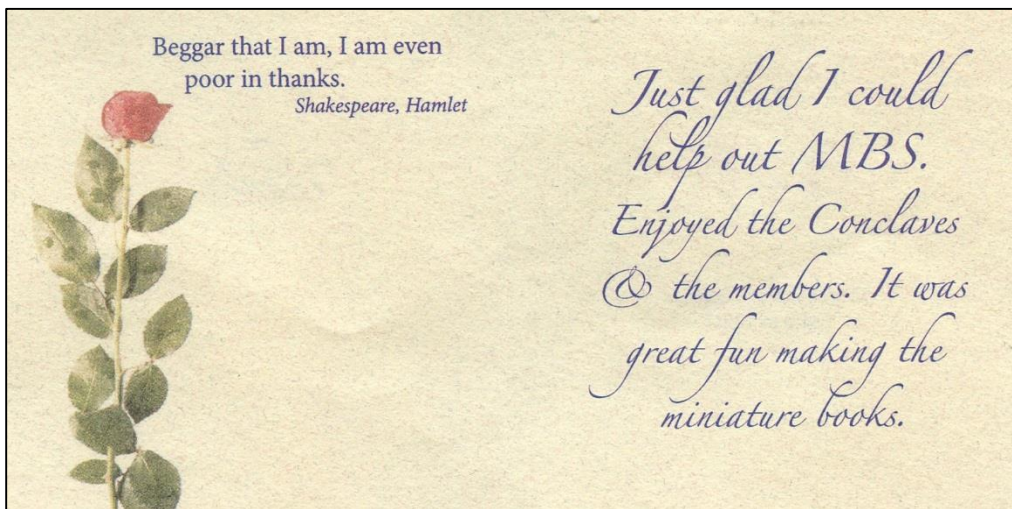 Beggar that I am, I am even
poor in thanks.
Shakespeare, Hamlet
Just glad I could
help out MBS.
Enjoyed the Conclaves
& the members. It was
great fun making the
miniature books.